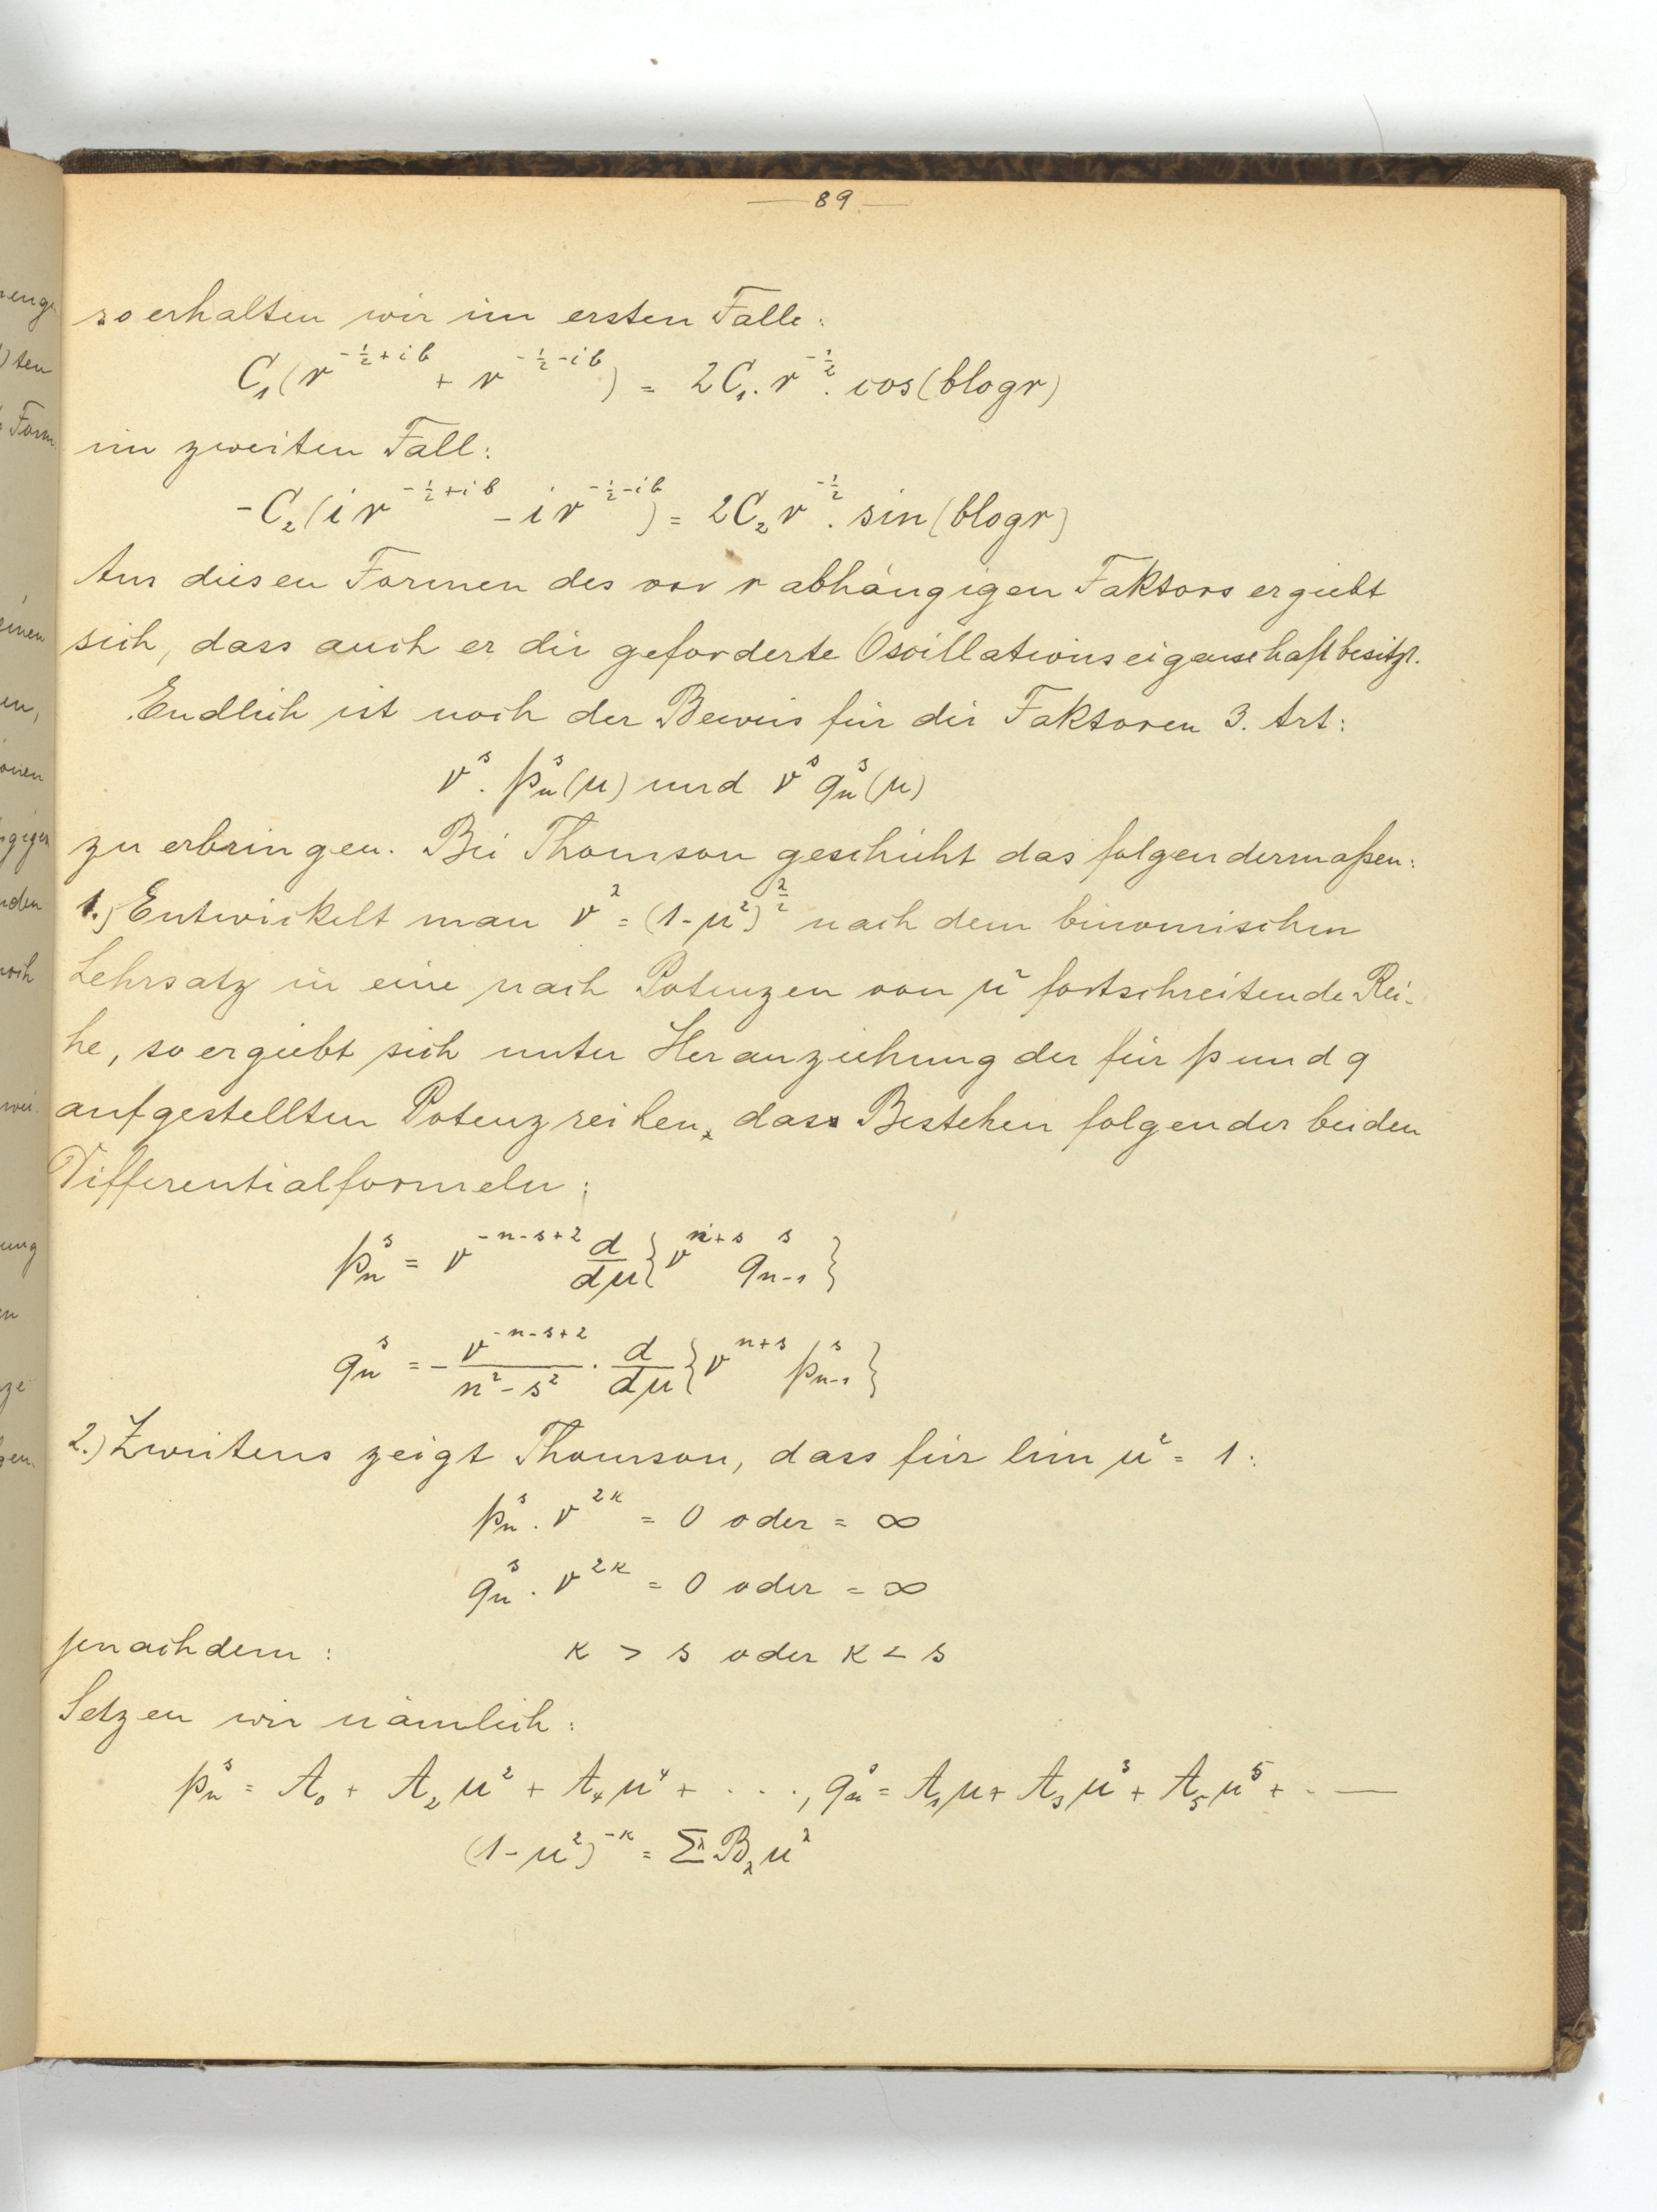 — 89 —
so erhalten wir im ersten Falle:
C₁(r^{-½+ib} + r^{-½-ib}) = 2C₁. r^{-½}. cos(blogr)
im zweiten Fall:
-C₂(ir^{-½+ib} - ir^{-½-ib}) = 2C₂r^{-½}. sin(blogr)
Aus diesen Formen des von r abhängigen Faktors ergiebt
sich, dass auch er die geforderte Oscillationseigenschaft besitzt.
Endlich ist noch der Beweis für die Faktoren 3. Art:
ν^s. p_n^s(μ) und ν^s q_n^s(μ)
zu erbringen. Bei Thomson geschieht das folgendermaßen:
1.) Entwickelt man ν² = (1-μ²)^{2/2} nach dem binomischen
Lehrsatz in eine nach Potenzen von μ² fortschreitende Rei-
he, so ergiebt sich unter Heranziehung der für p und q
aufgestellten Potenzreihen, das Bestehen folgender beiden
Differentialformeln:
p_n^s = ν^{-n-s+2} d/dμ {ν^{n+s} q_{n-1}^s}
q_n^s = - ν^{-n-s+2}/(n²-s²) . d/dμ {ν^{n+s} p_{n-1}^s}
2.) Zweitens zeigt Thomson, dass für lim μ² = 1:
p_n^s . ν^{2κ} = 0 oder = ∞
q_n^s . ν^{2κ} = 0 oder = ∞
jenachdem: κ > s oder κ < s
Setzen wir nämlich:
p_n^s = A₀ + A₂μ² + A₄μ⁴ + . . ., q_n^s = A₁μ + A₃μ³ + A₅μ⁵ + . —
(1-μ²)^{-κ} = Σ B_λ μ^λ